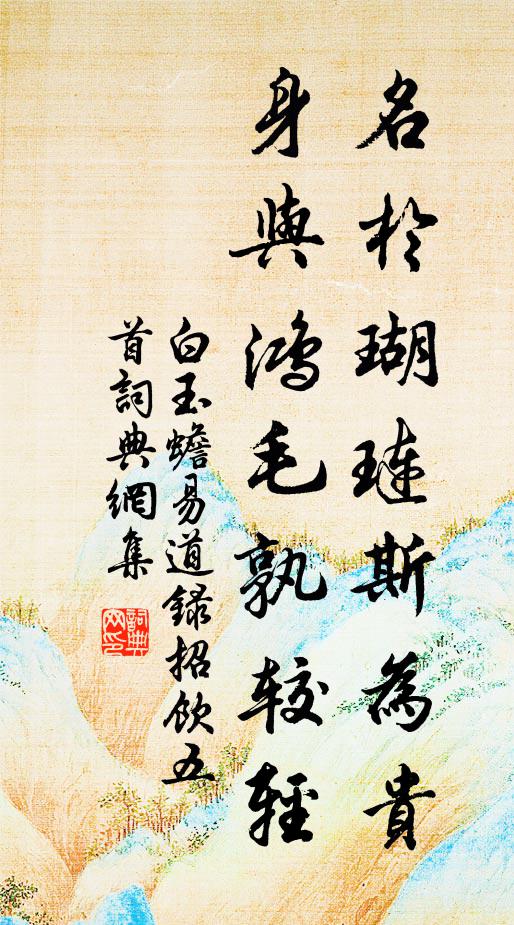 名於瑚璉斯為貴
身與鴻毛孰較輕
白玉蟾易道録招飲五
首詞典網集
詞典網印